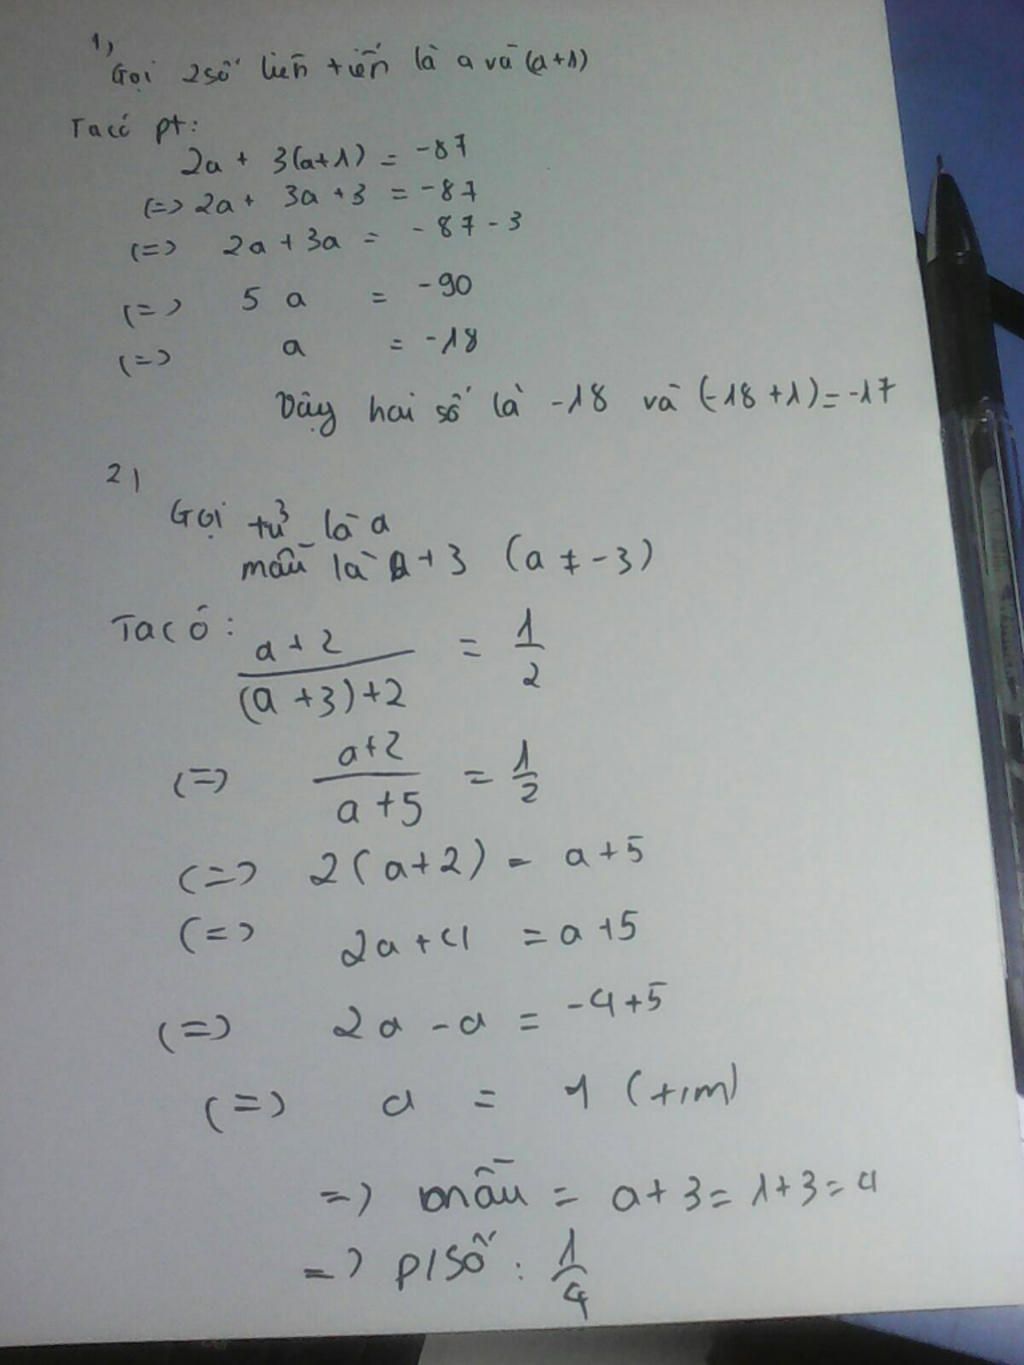 1)
Gọi 2 số liên tiến là a và (a+1)
Ta có pt:
2a + 3(a+1) = -87
(=) 2a + 3a + 3 = -87
(=) 2a + 3a = -87 - 3
(=) 5 a = -90
(=) a = -18
Vậy hai số là -18 và (-18 + 1) = -17
2)
Gọi tử là a
mẫu là a + 3 (a ≠ -3)
Ta có: a + 2 / (a + 3) + 2 = 1/2
(=) a+2 / a+5 = 1/2
(=) 2(a+2) = a+5
(=) 2a + 4 = a + 5
(=) 2a - a = -4 + 5
(=) a = 1 (t/m)
=) mẫu = a + 3 = 1 + 3 = 4
=) P/Số : 1/4